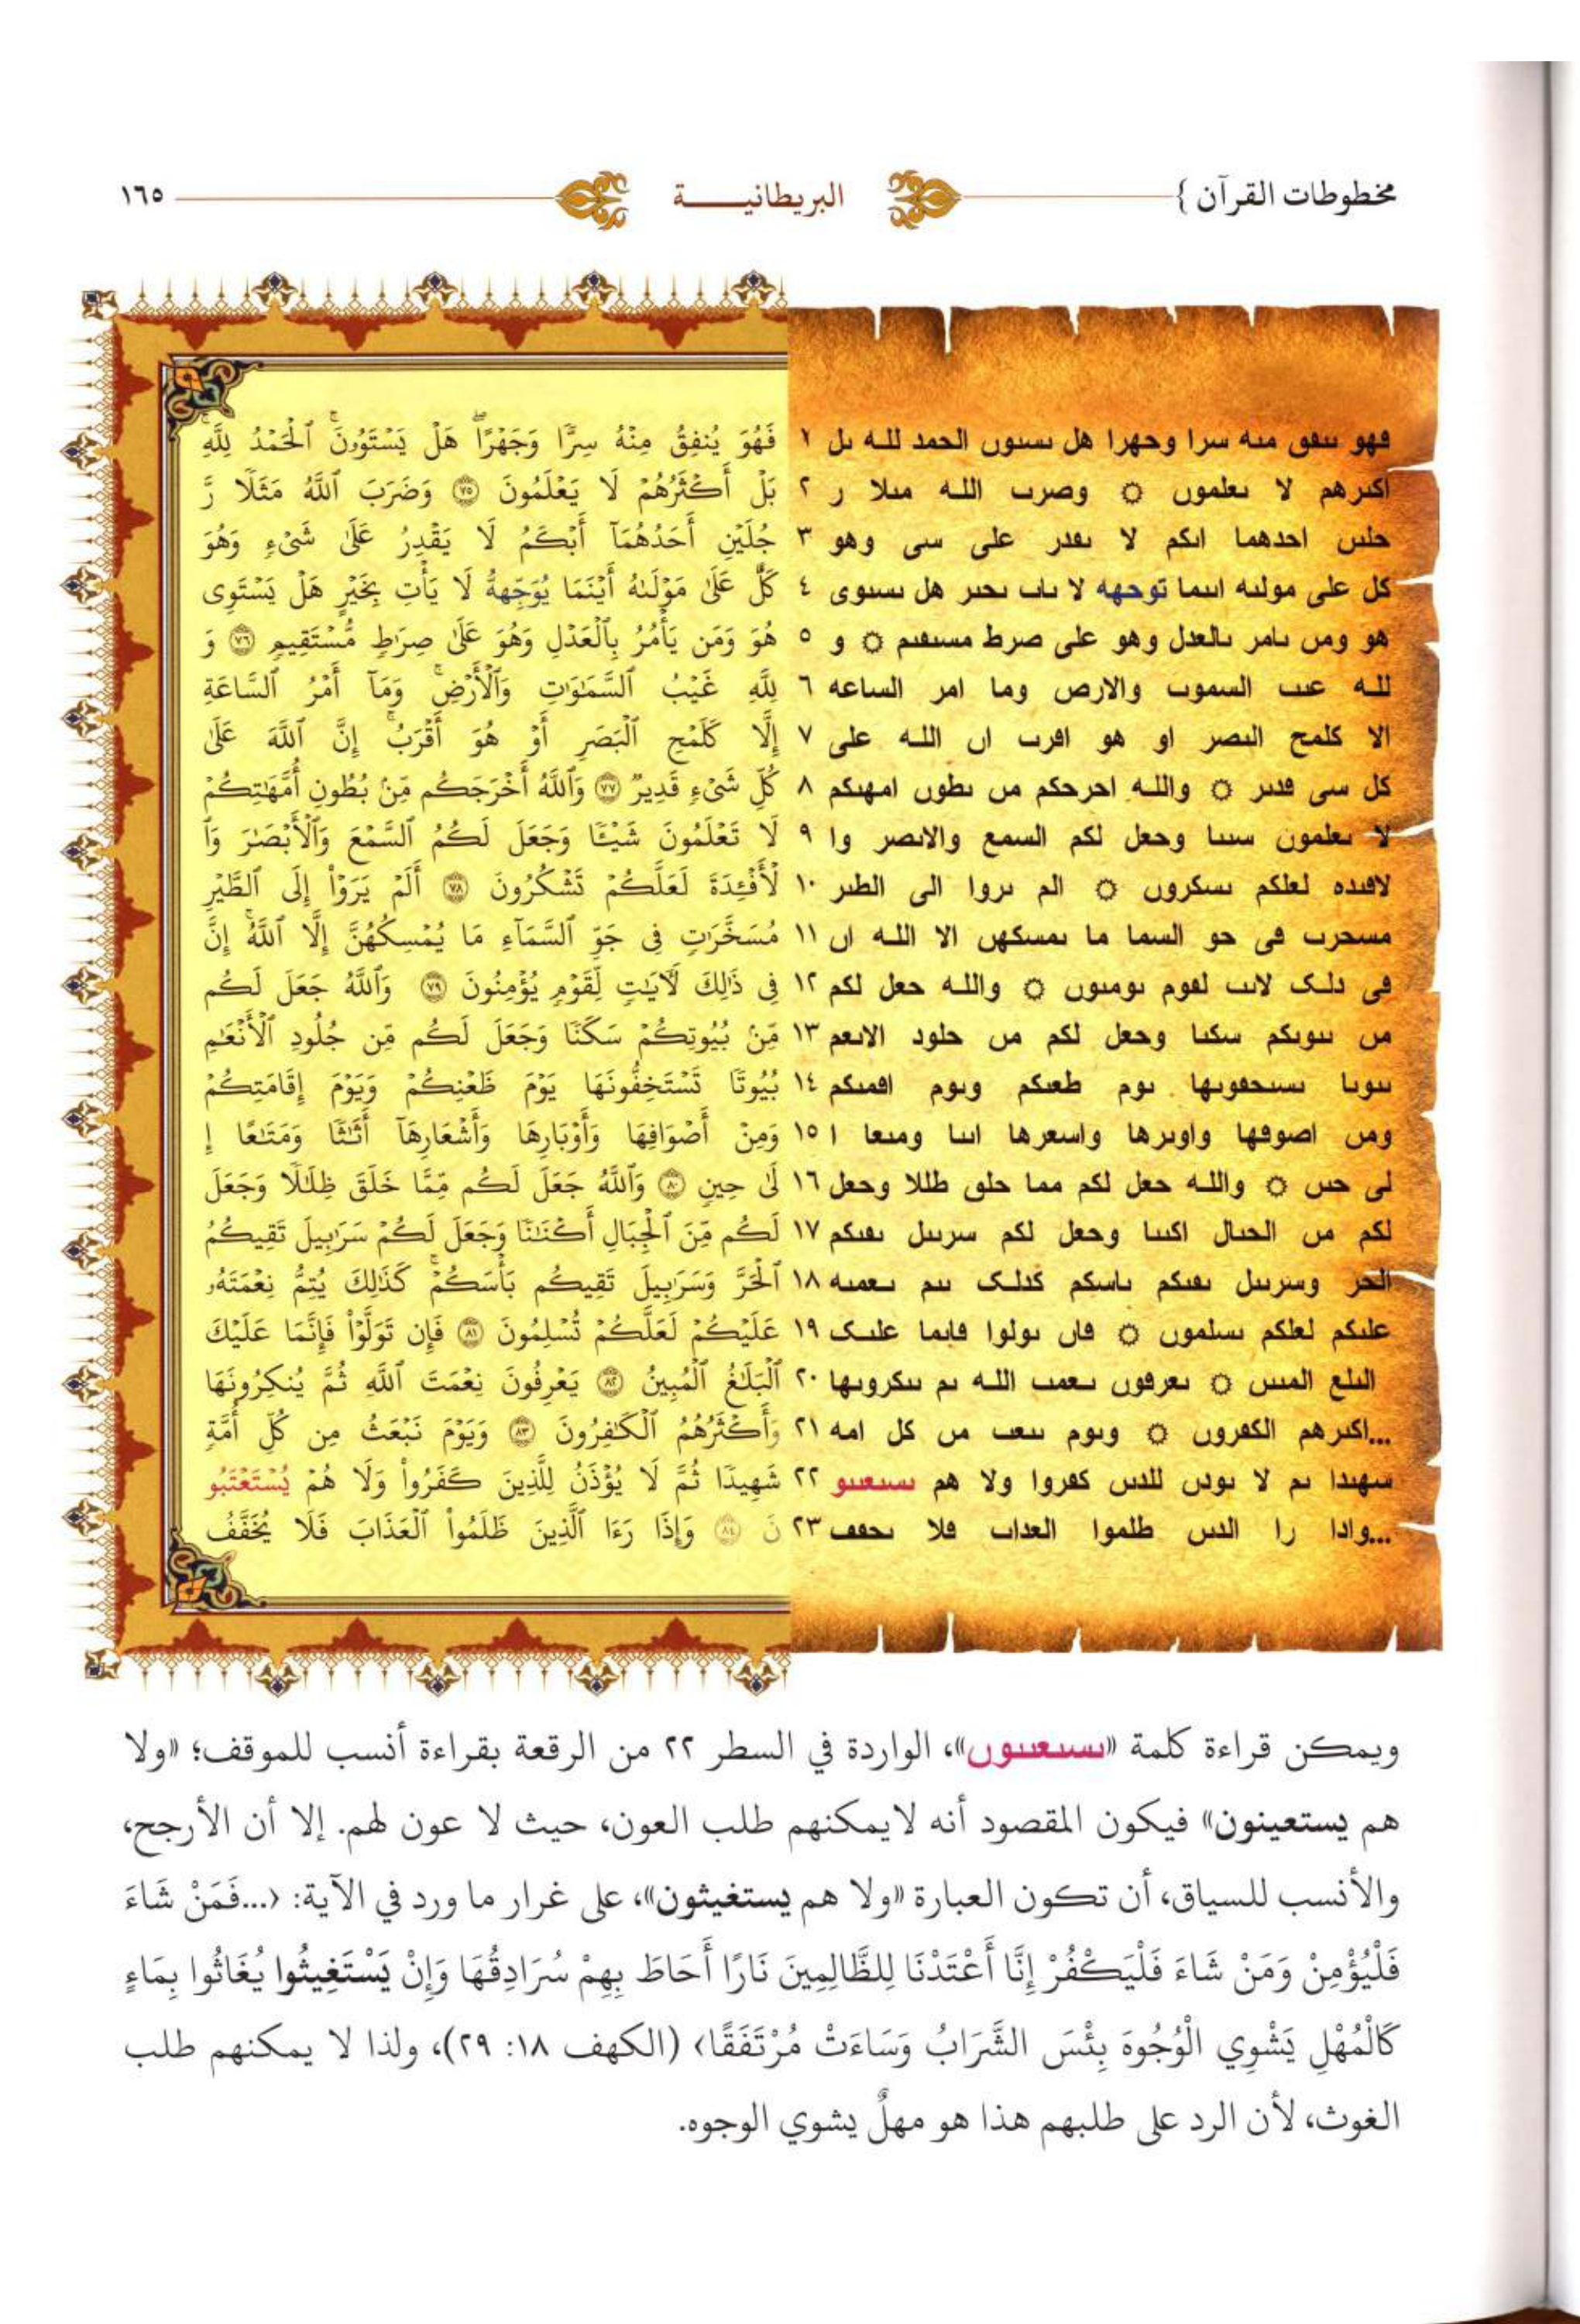 مخطوطات القرآن } البريطانيـــــة ١٦٥
فهو ىىفق مىه سرا وحهرا هل ىسىوں الحمد لله ىل ١ فَهُوَ يُنفِقُ مِنْهُ سِرًّا وَجَهْرًا ۖ هَلْ يَسْتَوُۥنَ ۚ ٱلْحَمْدُ لِلَّهِ ۚ
اكىرهم لا ىعلموں ۝ وصرٮ الله مىلا ر ٢ بَلْ أَكْثَرُهُمْ لَا يَعْلَمُونَ ٧٥ وَضَرَبَ ٱللَّهُ مَثَلًا رَّ
حلىں احدهما اىكم لا ىڡدر على سى وهو ٣ جُلَيْنِ أَحَدُهُمَآ أَبْكَمُ لَا يَقْدِرُ عَلَىٰ شَىْءٍ وَهُوَ
كل على مولىه اىىما توحهه لا ىاٮ ىحىر هل ىسىوى ٤ كَلٌّ عَلَىٰ مَوْلَىٰهُ أَيْنَمَا يُوَجِّههُّ لَا يَأْتِ بِخَيْرٍ هَلْ يَسْتَوِى
هو ومں ىامر ىالعدل وهو على صرط مسىڡىم ۝ و ٥ هُوَ وَمَن يَأْمُرُ بِٱلْعَدْلِ وَهُوَ عَلَىٰ صِرَٰطٍ مُّسْتَقِيمٍ ٧٦ وَ
لله عىٮ السموٮ والارص وما امر الساعه ٦ لِلَّهِ غَيْبُ ٱلسَّمَٰوَٰتِ وَٱلْأَرْضِ ۚ وَمَآ أَمْرُ ٱلسَّاعَةِ
الا كلمح الىصر او هو اڡرٮ اں الله على ٧ إِلَّا كَلَمْحِ ٱلْبَصَرِ أَوْ هُوَ أَقْرَبُ ۚ إِنَّ ٱللَّهَ عَلَىٰ
كل سى ڡدىر ۝ والله احرحكم مں ىطوں امهىكم ٨ كُلِّ شَىْءٍ قَدِيرٌ ٧٧ وَٱللَّهُ أَخْرَجَكُم مِّنۢ بُطُونِ أُمَّهَٰتِكُمْ
لا ىعلموں سىىا وحعل لكم السمع والاىصر وا ٩ لَا تَعْلَمُونَ شَيْـًٔا وَجَعَلَ لَكُمُ ٱلسَّمْعَ وَٱلْأَبْصَٰرَ وَٱ
لاڡىده لعلكم ىسكروں ۝ الم ىروا الى الطىر ١٠ لْأَفْـِٔدَةَ لَعَلَّكُمْ تَشْكُرُونَ ٧٨ أَلَمْ يَرَوْا۟ إِلَى ٱلطَّيْرِ
مسحرٮ فى حو السما ما ىمسكهں الا الله اں ١١ مُسَخَّرَٰتٍ فِى جَوِّ ٱلسَّمَآءِ مَا يُمْسِكُهُنَّ إِلَّا ٱللَّهُ ۗ إِنَّ
فى دلک لاىٮ لڡوم ىومىوں ۝ والله حعل لكم ١٢ فِى ذَٰلِكَ لَـَٔايَٰتٍ لِّقَوْمٍ يُؤْمِنُونَ ٧٩ وَٱللَّهُ جَعَلَ لَكُم
مں ىىوىكم سكىا وحعل لكم مں حلود الاىعم ١٣ مِّنۢ بُيُوتِكُمْ سَكَنًا وَجَعَلَ لَكُم مِّن جُلُودِ ٱلْأَنْعَٰمِ
ىىوىا ىسىحڡوىها ىوم طعىكم وىوم اڡمىكم ١٤ بُيُوتًا تَسْتَخِفُّونَهَا يَوْمَ ظَعْنِكُمْ وَيَوْمَ إِقَامَتِكُمْ
ومں اصوفها واوىرها واسعرها اىىا ومىعا ا ١٥ وَمِنْ أَصْوَافِهَا وَأَوْبَارِهَا وَأَشْعَارِهَآ أَثَٰثًا وَمَتَٰعًا إِ
لى حىں ۝ والله حعل لكم مما حلق طللا وحعل ١٦ لَىٰ حِينٍ ٨٠ وَٱللَّهُ جَعَلَ لَكُم مِّمَّا خَلَقَ ظِلَٰلًا وَجَعَلَ
لكم مں الحىال اكىىا وحعل لكم سرىىل ىڡىكم ١٧ لَكُم مِّنَ ٱلْجِبَالِ أَكْنَٰنًا وَجَعَلَ لَكُمْ سَرَٰبِيلَ تَقِيكُمُ
الحر وسرىىل ىڡىكم ىاسكم كدلک ىىم ىعمىه ١٨ ٱلْحَرَّ وَسَرَٰبِيلَ تَقِيكُم بَأْسَكُمْ ۚ كَذَٰلِكَ يُتِمُّ نِعْمَتَهُۥ
علىكم لعلكم ىسلموں ۝ فاں ىولوا فاىما علىک ١٩ عَلَيْكُمْ لَعَلَّكُمْ تُسْلِمُونَ ٨١ فَإِن تَوَلَّوْا۟ فَإِنَّمَا عَلَيْكَ
الىلع المىىں ۝ ىعرفوں ىعمٮ الله ىم ىىكروىها ٢٠ ٱلْبَلَٰغُ ٱلْمُبِينُ ٨٢ يَعْرِفُونَ نِعْمَتَ ٱللَّهِ ثُمَّ يُنكِرُونَهَا
...اكىرهم الكفروں ۝ وىوم ىىعٮ مں كل امه ٢١ وَأَكْثَرُهُمُ ٱلْكَٰفِرُونَ ٨٣ وَيَوْمَ نَبْعَثُ مِن كُلِّ أُمَّةٍ
سهىدا ىم لا ىودں للدىں كفروا ولا هم ىسىعىىو ٢٢ شَهِيدًا ثُمَّ لَا يُؤْذَنُ لِلَّذِينَ كَفَرُوا۟ وَلَا هُمْ يُسْتَعْتَبُو
...وادا را الدىں طلموا العداٮ فلا ىحڡڡ ٢٣ نَ ٨٤ وَإِذَا رَءَا ٱلَّذِينَ ظَلَمُوا۟ ٱلْعَذَابَ فَلَا يُخَفَّفُ
ويمكن قراءة كلمة «ىسىعىىوں»، الواردة في السطر ٢٢ من الرقعة بقراءة أنسب للموقف؛ «ولا
هم يستعينون» فيكون المقصود أنه لايمكنهم طلب العون، حيث لا عون لهم. إلا أن الأرجح،
والأنسب للسياق، أن تكون العبارة «ولا هم يستغيثون»، على غرار ما ورد في الآية: ﴿...فَمَنْ شَاءَ
فَلْيُؤْمِنْ وَمَنْ شَاءَ فَلْيَكْفُرْ إِنَّا أَعْتَدْنَا لِلظَّالِمِينَ نَارًا أَحَاطَ بِهِمْ سُرَادِقُهَا وَإِنْ يَسْتَغِيثُوا يُغَاثُوا بِمَاءٍ
كَالْمُهْلِ يَشْوِي الْوُجُوهَ بِئْسَ الشَّرَابُ وَسَاءَتْ مُرْتَفَقًا﴾ (الكهف ١٨: ٢٩)، ولذا لا يمكنهم طلب
الغوث، لأن الرد على طلبهم هذا هو مهلٌ يشوي الوجوه.